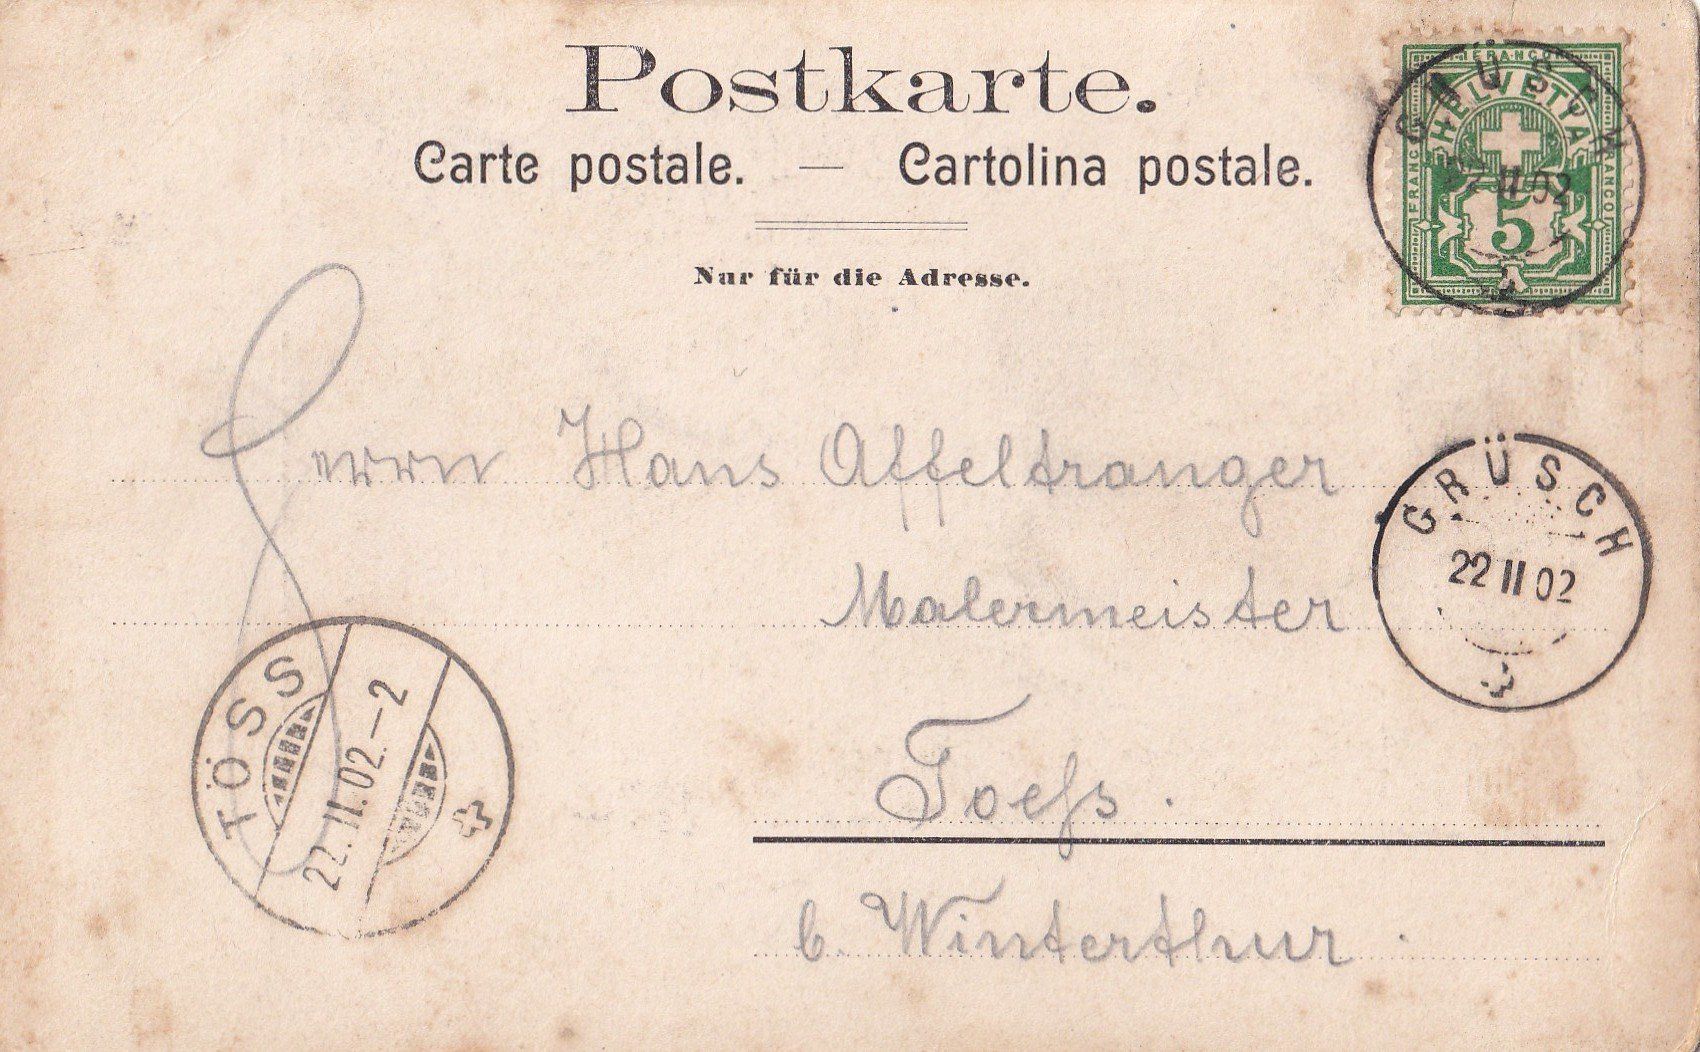 Postkarte.
Carte postale. — Cartolina postale.
Nur für die Adresse.
FRANCO
HELVETIA
FRANCO
FRANCO
5
GRÜSCH
22 II 02
Herrn Hans Affeltranger
Malermeister
GRÜSCH
22 II 02
Toess.
b. Winterthur.
TÖSS
22.II.02.–2